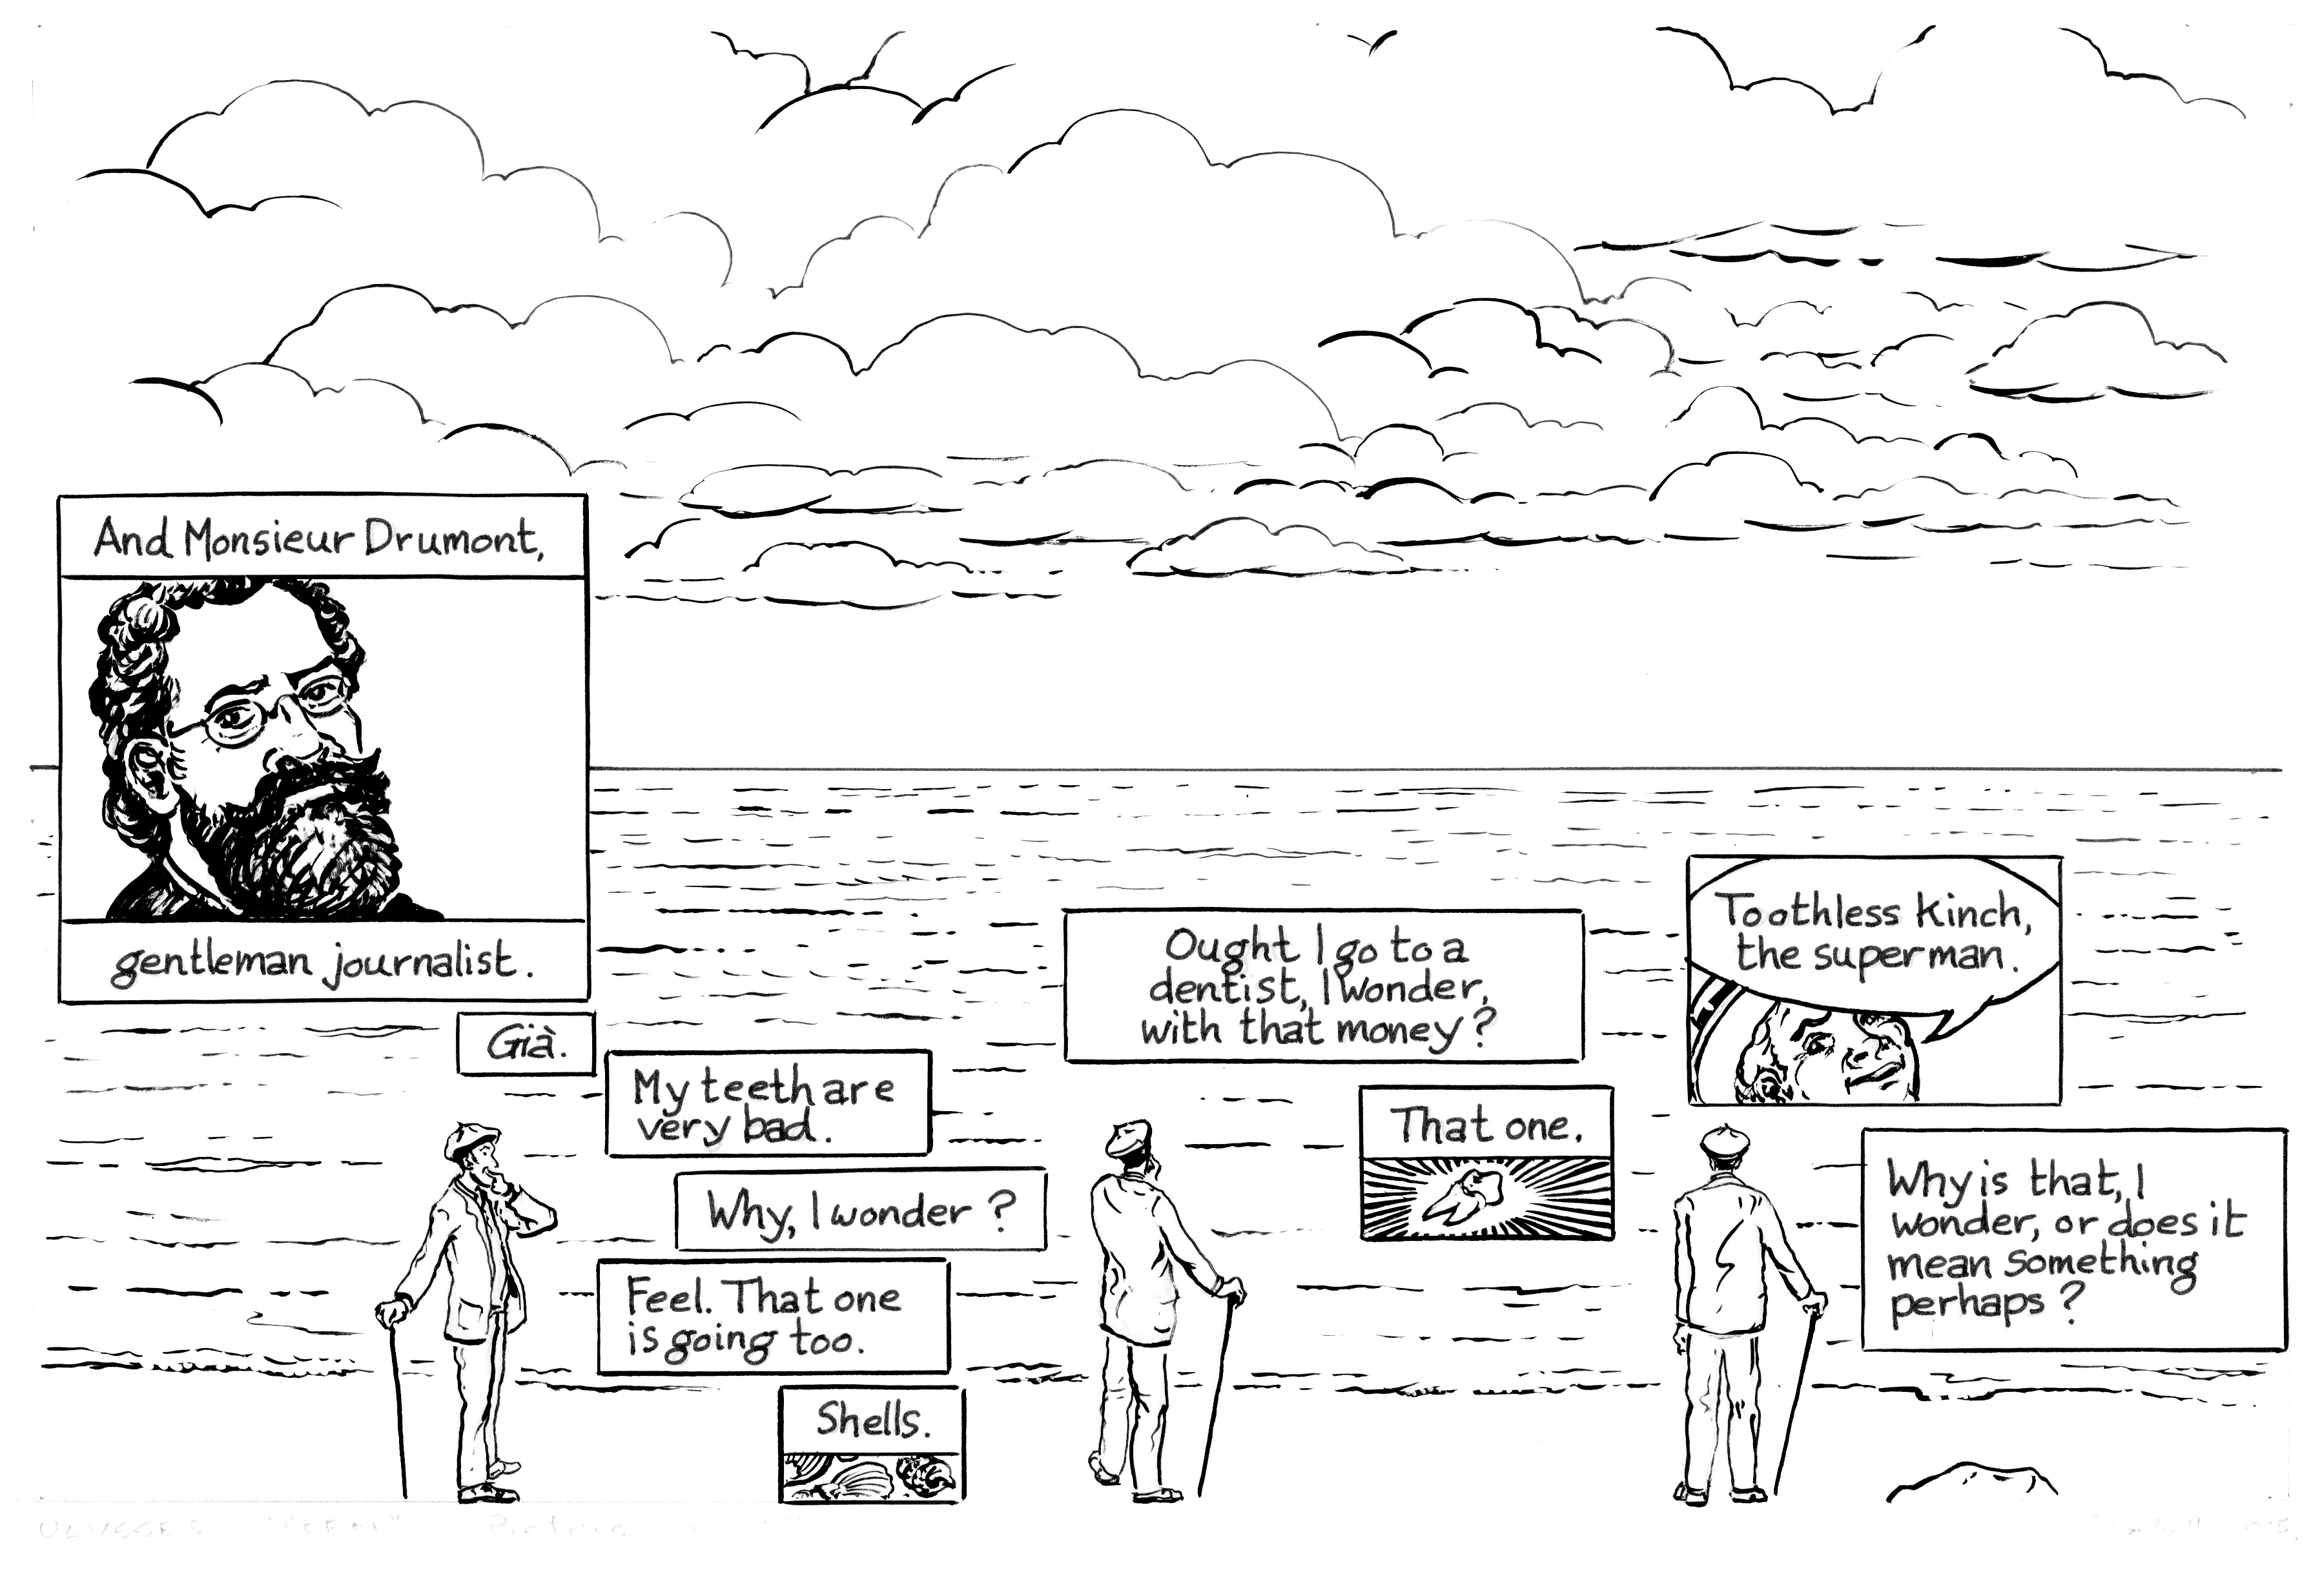 And Monsieur Drumont,
gentleman journalist.
Già.
My teeth are
very bad.
Why, I wonder?
Feel. That one
is going too.
Shells.
Ought I go to a
dentist, I wonder,
with that money?
That one.
Toothless Kinch,
the superman.
Why is that, I
wonder, or does it
mean something
perhaps?
ULYSSES "SEEN"